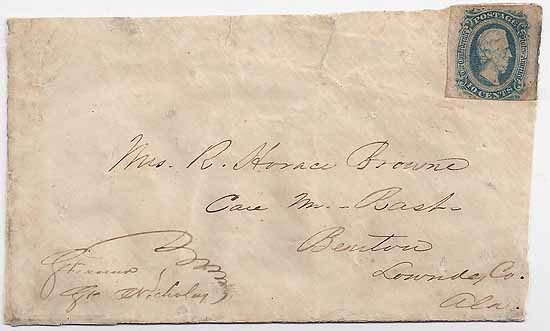 POSTAGE
TEN CENTS
Mrs. R. Horace Browne
Care M. - Rast -
Benton
Lownde, Co.
Ala.
Nicholas